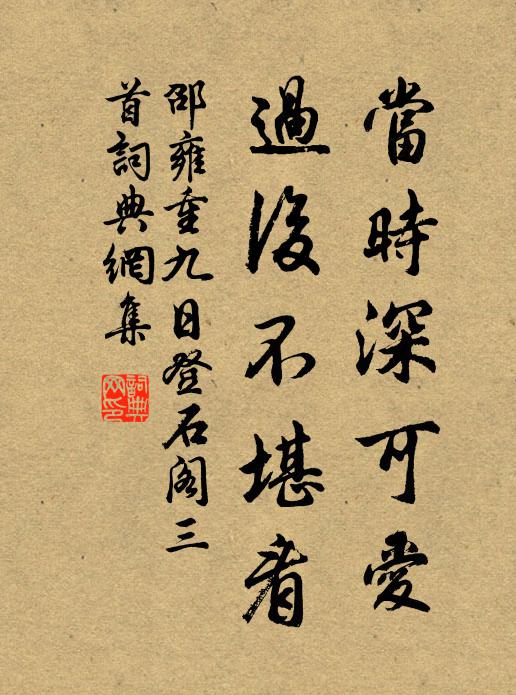 當時深可愛
過後不堪看
邵雍重九日登石閣三
首詞典網集
詞典網印